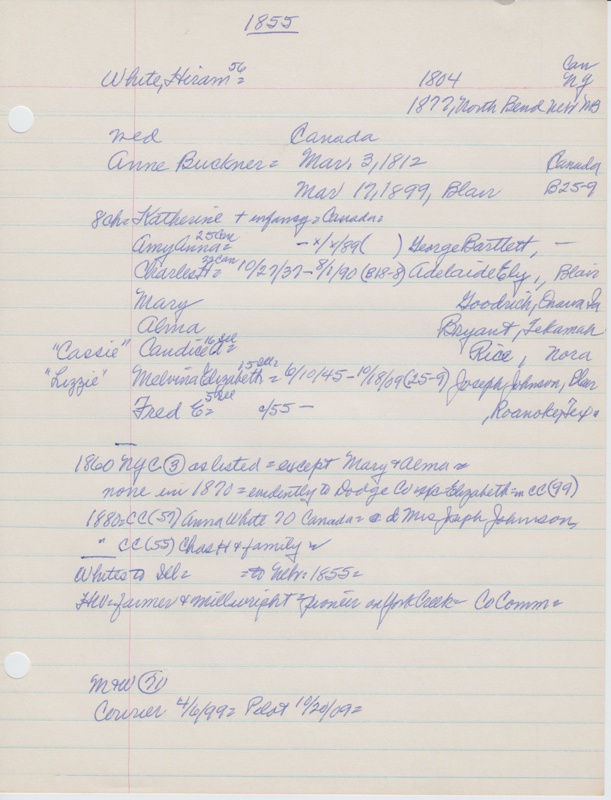 1855
White, Hiram 56 = 1804 Can NY
1877, North Bend New NB
wed Canada
Anne Buckner = Mar. 3, 1812 Canada
Mar 17, 1899, Blair B25-9
8 ch = Katherine + infancy = Canada =
Amy Anna 25 Can = - x/x/89 ( ) George Bartlett, -
Charles H 22 Can = 10/27/37 - 8/1/90 (B18-8) Adelaide Ely, , Blair
Mary Goodrich, Onawa Ia
Alma Bryant, Tekamah
"Cassie" Candice U 16 Ill = Rice, Nora
"Lizzie" Melvina Elizabeth 15 Ill = 6/10/45 - 10/18/09 (25-9) Joseph Johnson, Blair
Fred E 5 Ill = c/55 - , Roanoke, Tex =
1860 NYC (3) as listed = except Mary & Alma
none in 1870 = evidently to Dodge Co Elizabeth = in CC (99)
1880 = CC (57) Anna White 70 Canada = @ d Mrs Joseph Johnson,
" CC (55) Chas H & family
Whites to Ill = = to Nebr = 1855 =
HW = farmer & millwright = pioneer on York Creek = Co Comm =
M&W (71)
Courier 4/6/99 = Pilot 10/20/09 =